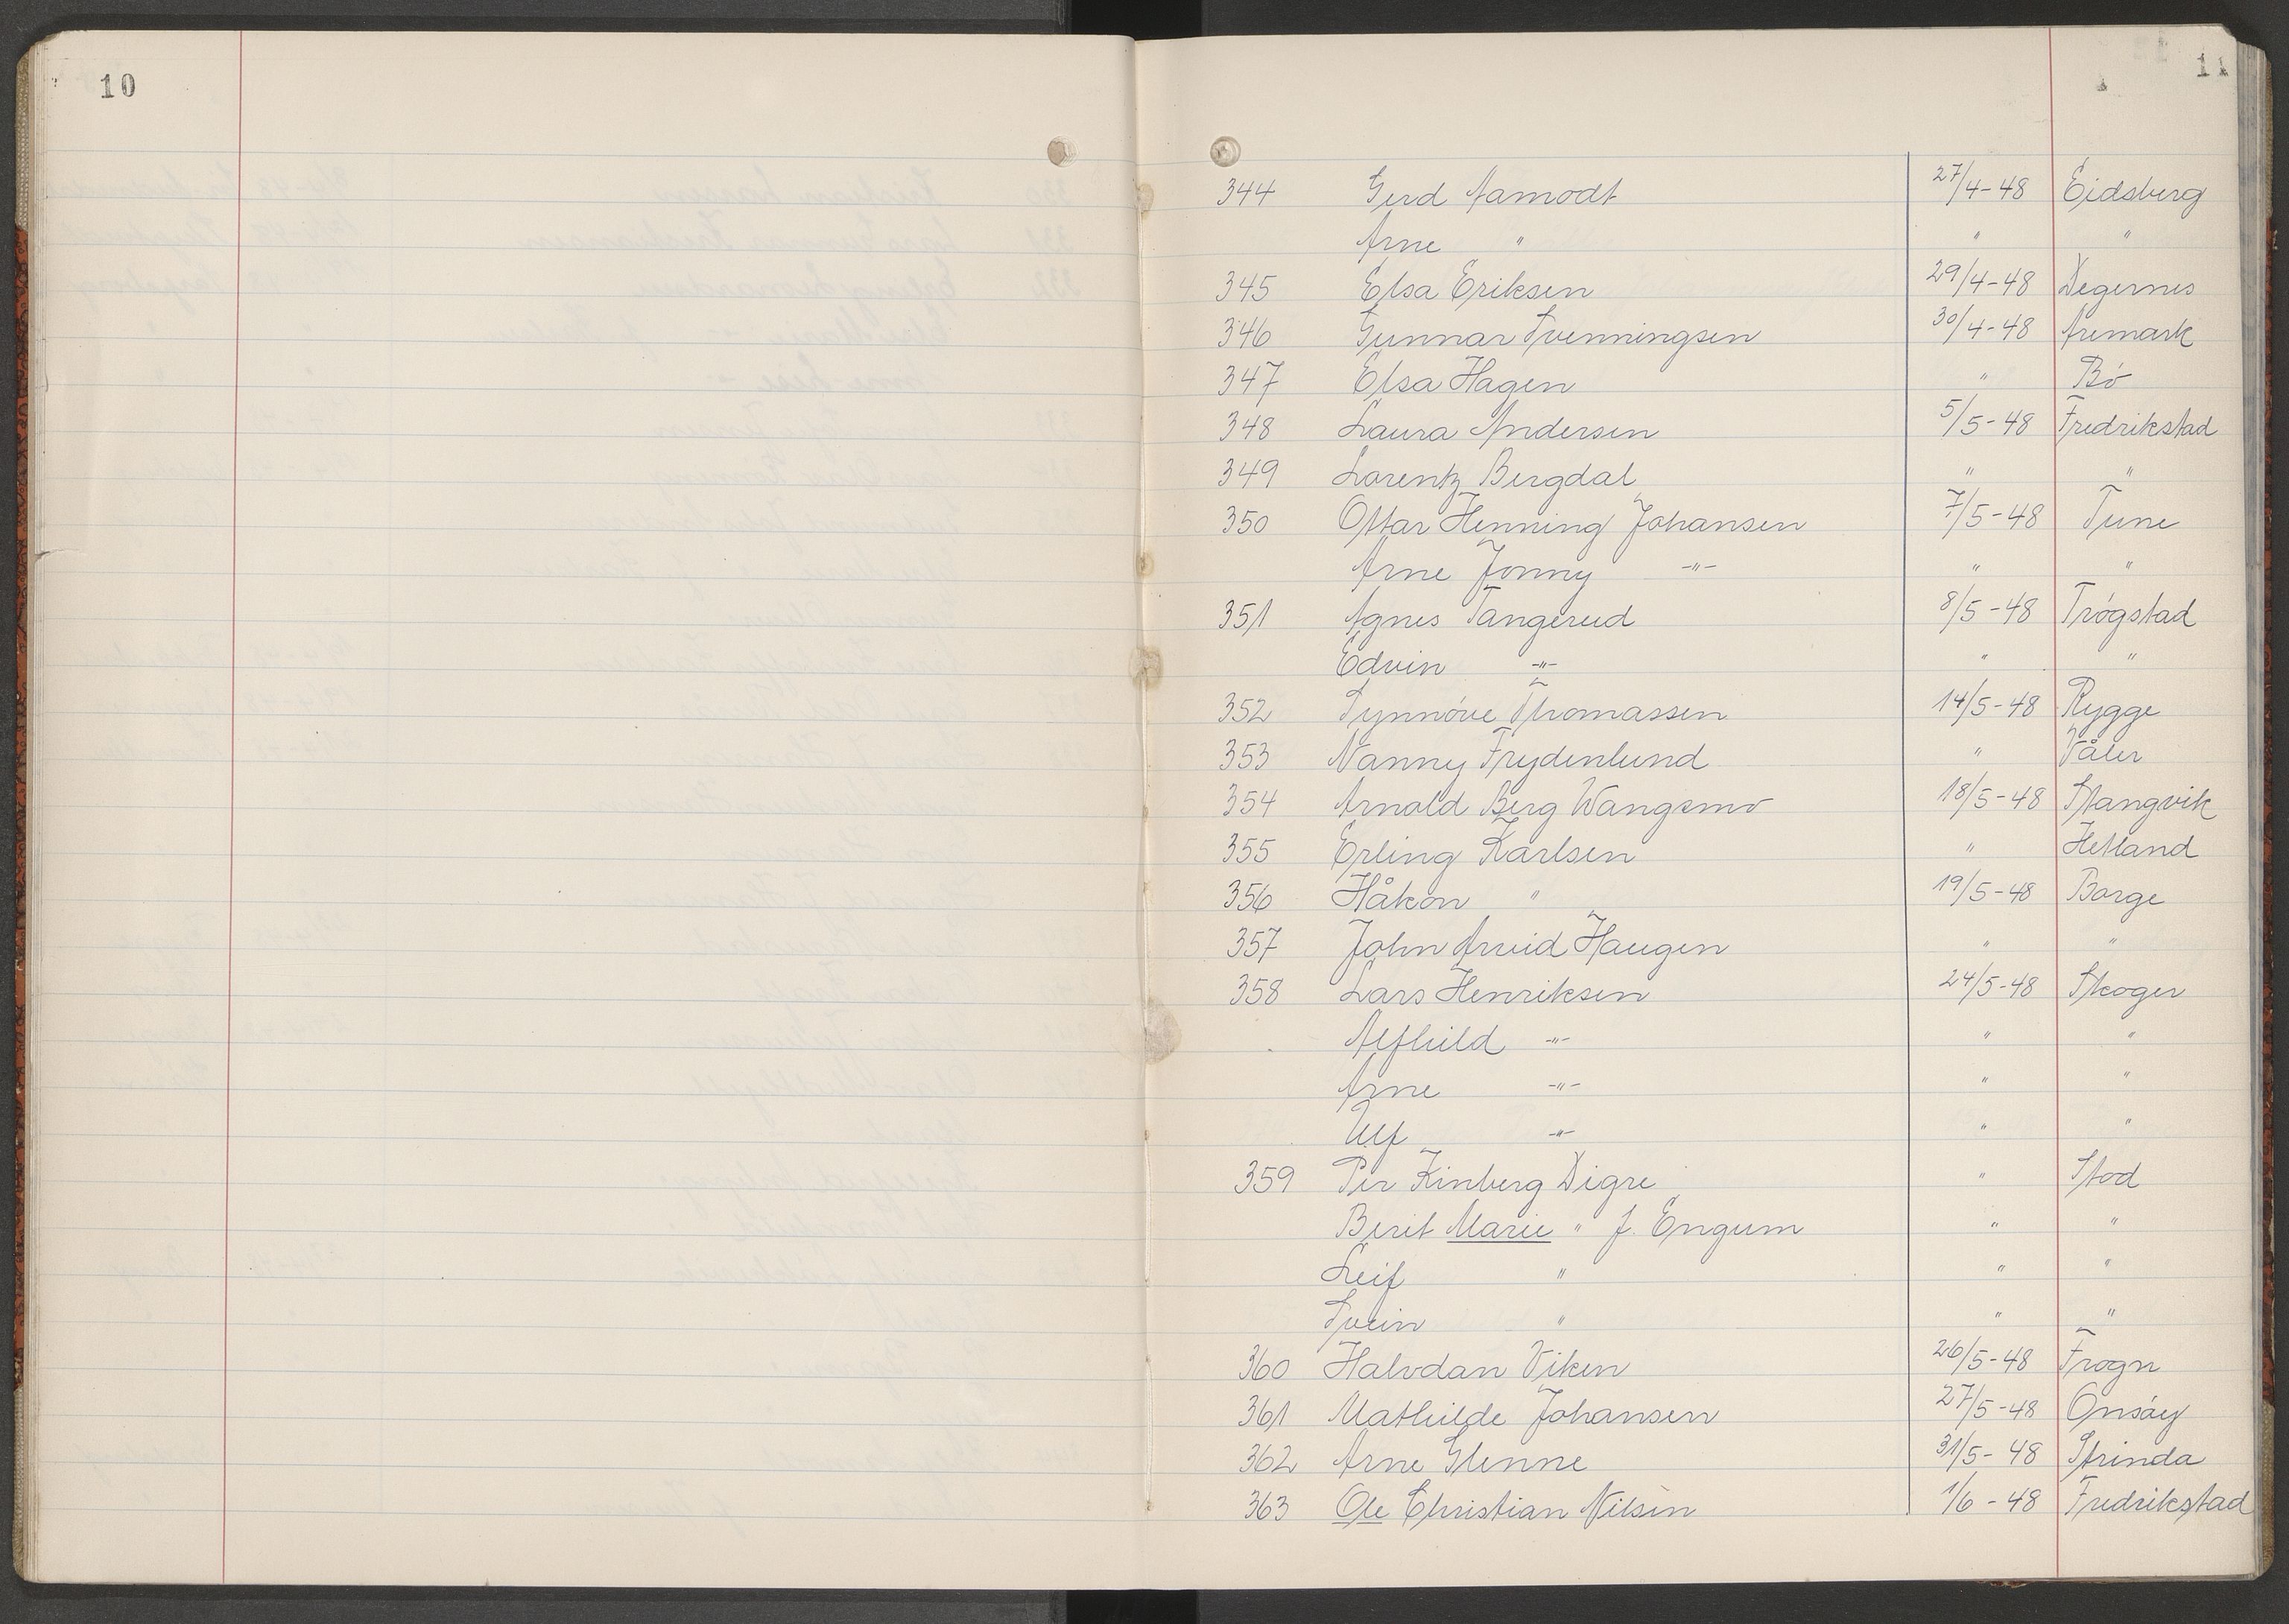 10
11
344 Gerd Aamodt 27/4-48 Eidsberg
Arne " " "
345 Elsa Eriksen 29/4-48 Degernes
346 Gunnar Svenningsen 30/4-48 Aremark
347 Elsa Hagen " Bö
348 Laura Andersen 5/5-48 Fredrikstad
349 Lorentz Bergdal " "
350 Ottar Henning Johansen 7/5-48 Tune
Arne Jonny -"- " "
351 Agnes Tangerud 8/5-48 Trögstad
Edvin -"- " "
352 Synnöve Thomassen 14/5-48 Rygge
353 Nanny Frydenlund " Våler
354 Arnold Berg Wangsmo 18/5-48 Stangvik
355 Erling Karlsen " Hetland
356 Håkon " 19/5-48 Borge
357 John Arvid Haugen " "
358 Lars Henriksen 24/5-48 Skoger
Alfhild -"- " "
Arne -"- " "
Ulf -"- " "
359 Per Kinberg Digre " Stod
Berit Marie " f. Engum " "
Leif " " "
Svein " " "
360 Halvdan Viken 26/5-48 Frogn
361 Mathilde Johansen 27/5-48 Onsöy
362 Arne Glenne 31/5-48 Strinda
363 Ole Christian Nilsen 1/6-48 Fredrikstad